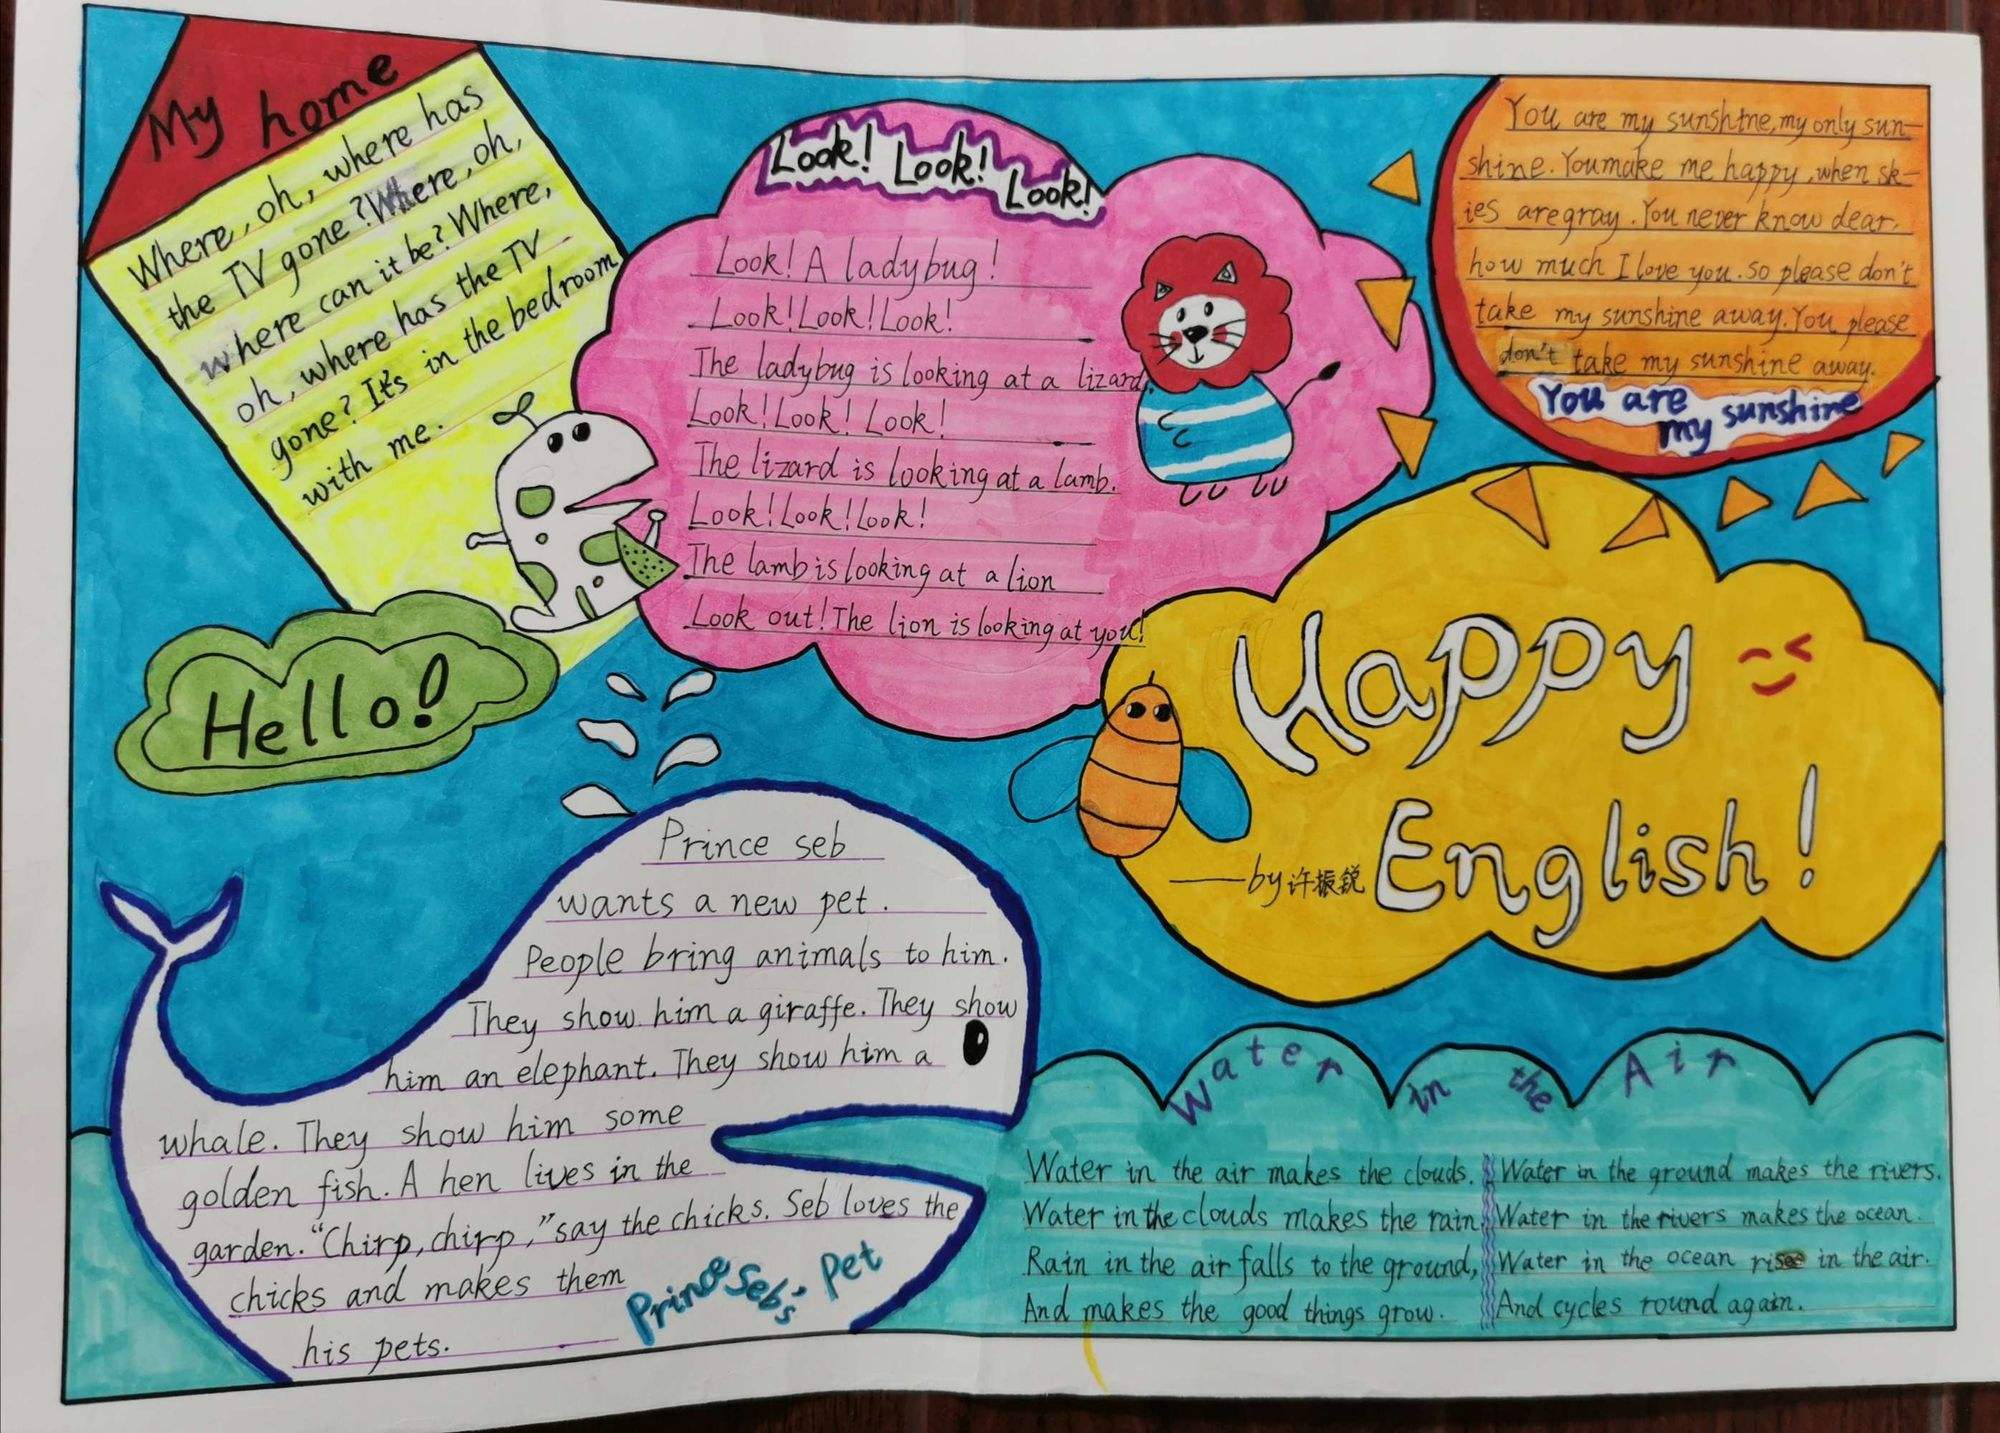 My home
Where, oh, where has
the TV gone? Where, oh,
where can it be? Where,
oh, where has the TV
gone? It's in the bedroom
with me.
Hello!
Look! Look! Look!
Look! A ladybug!
Look! Look! Look!
The ladybug is looking at a lizard.
Look! Look! Look!
The lizard is looking at a lamb.
Look! Look! Look!
The lamb is looking at a lion
Look out! The lion is looking at you!
You are my sunshine, my only sun-
shine. You make me happy, when sk-
ies are gray. You never know dear,
how much I love you. so please don't
take my sunshine away. You please
don't take my sunshine away.
You are
my sunshine
Happy
English!
——by 许振锐
Prince seb
wants a new pet.
People bring animals to him.
They show him a giraffe. They show
him an elephant. They show him a
whale. They show him some
golden fish. A hen lives in the
garden. "Chirp, chirp," say the chicks. Seb loves the
chicks and makes them
his pets.
Prince Seb's Pet
Water in the Air
Water in the air makes the clouds.
Water in the clouds makes the rain.
Rain in the air falls to the ground,
And makes the good things grow.
Water in the ground makes the rivers.
Water in the rivers makes the ocean.
Water in the ocean rises in the air.
And cycles round again.